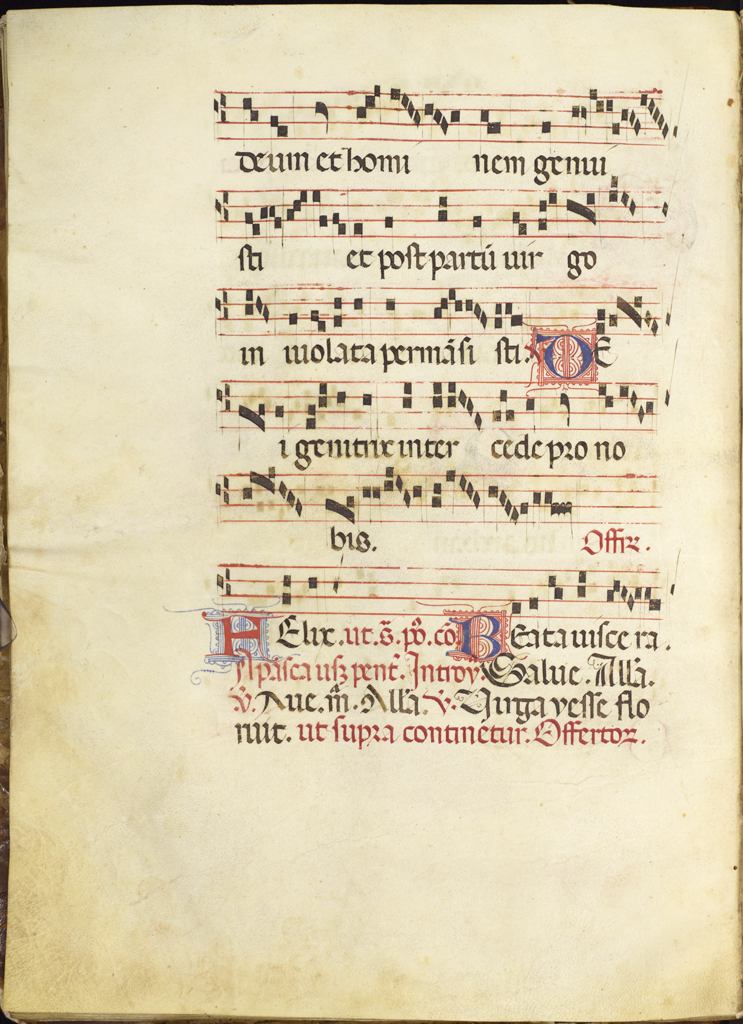 deum et homi nem genui
sti et post partū uir go
in uiolata permāsi sti. ℣ DE
i genitrix inter cede pro no
bis. Offir.
FElix. ut s̄. pō. cō. BEata uisce ra.
A pasca usꝫ pent. Introy. Salue. Allā.
℣. Aue. m̄. Allā. ℣. Uirga yesse flo
ruit. ut supra continetur. Offertoꝝ.